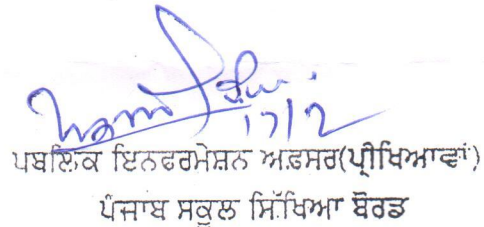 17/2
ਪਬਲਿਕ ਇਨਫਰਮੇਸ਼ਨ ਅਫ਼ਸਰ(ਪ੍ਰੀਖਿਆਵਾਂ)
ਪੰਜਾਬ ਸਕੂਲ ਸਿੱਖਿਆ ਬੋਰਡ